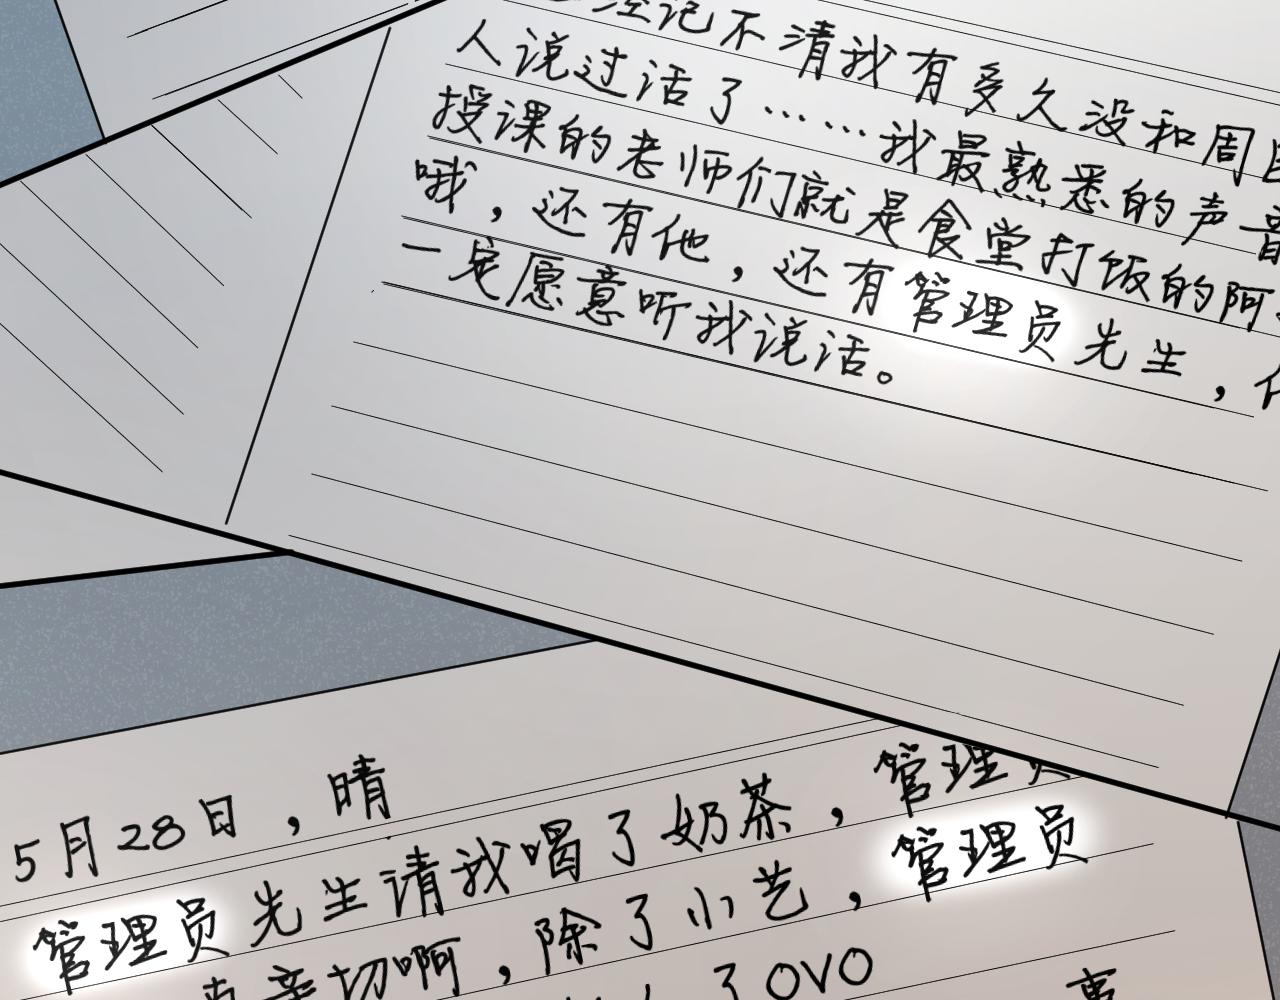 记不清我有多久没和周
人说过话了……我最熟悉的声音
授课的老师们就是食堂打饭的阿
哦，还有他，还有管理员先生，
一定愿意听我说话。
5月28日，晴
管理员先生请我喝了奶茶，管理
亲切啊，除了小艺，管理员
了OVO